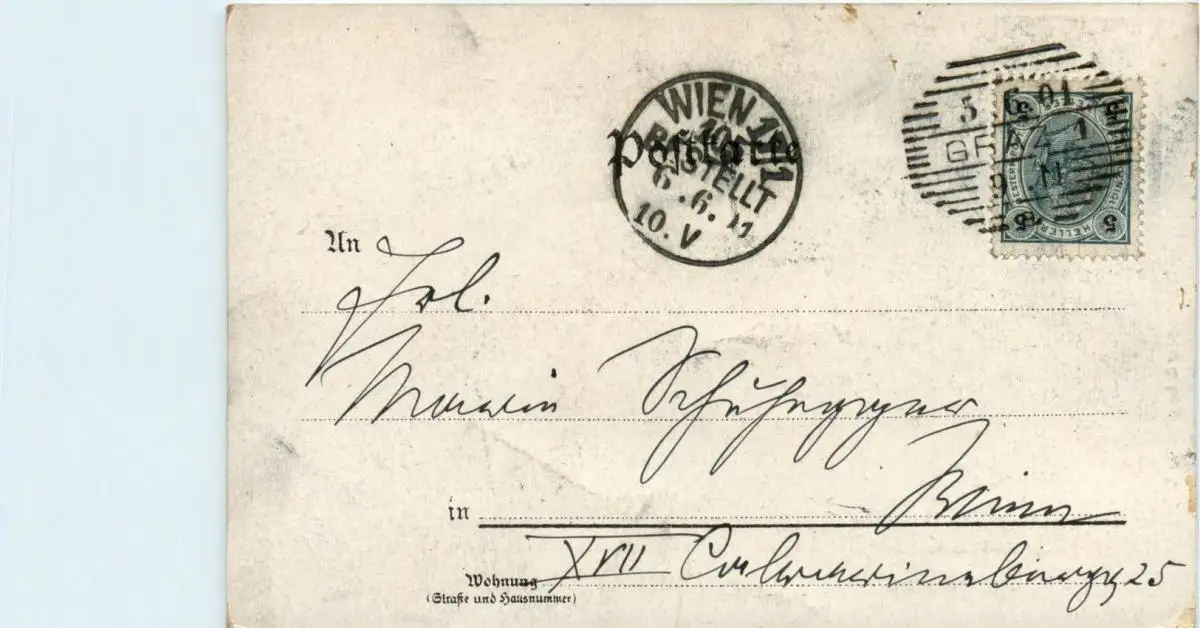 Postkarte
WIEN 17/1
BESTELLT
6.6.
10.V
5.6.01
GRAZ 1
5 5
HELLER
An
Frl.
in Wien
Wohnung XVII Calvarienbergg 25
(Straße und Hausnummer)